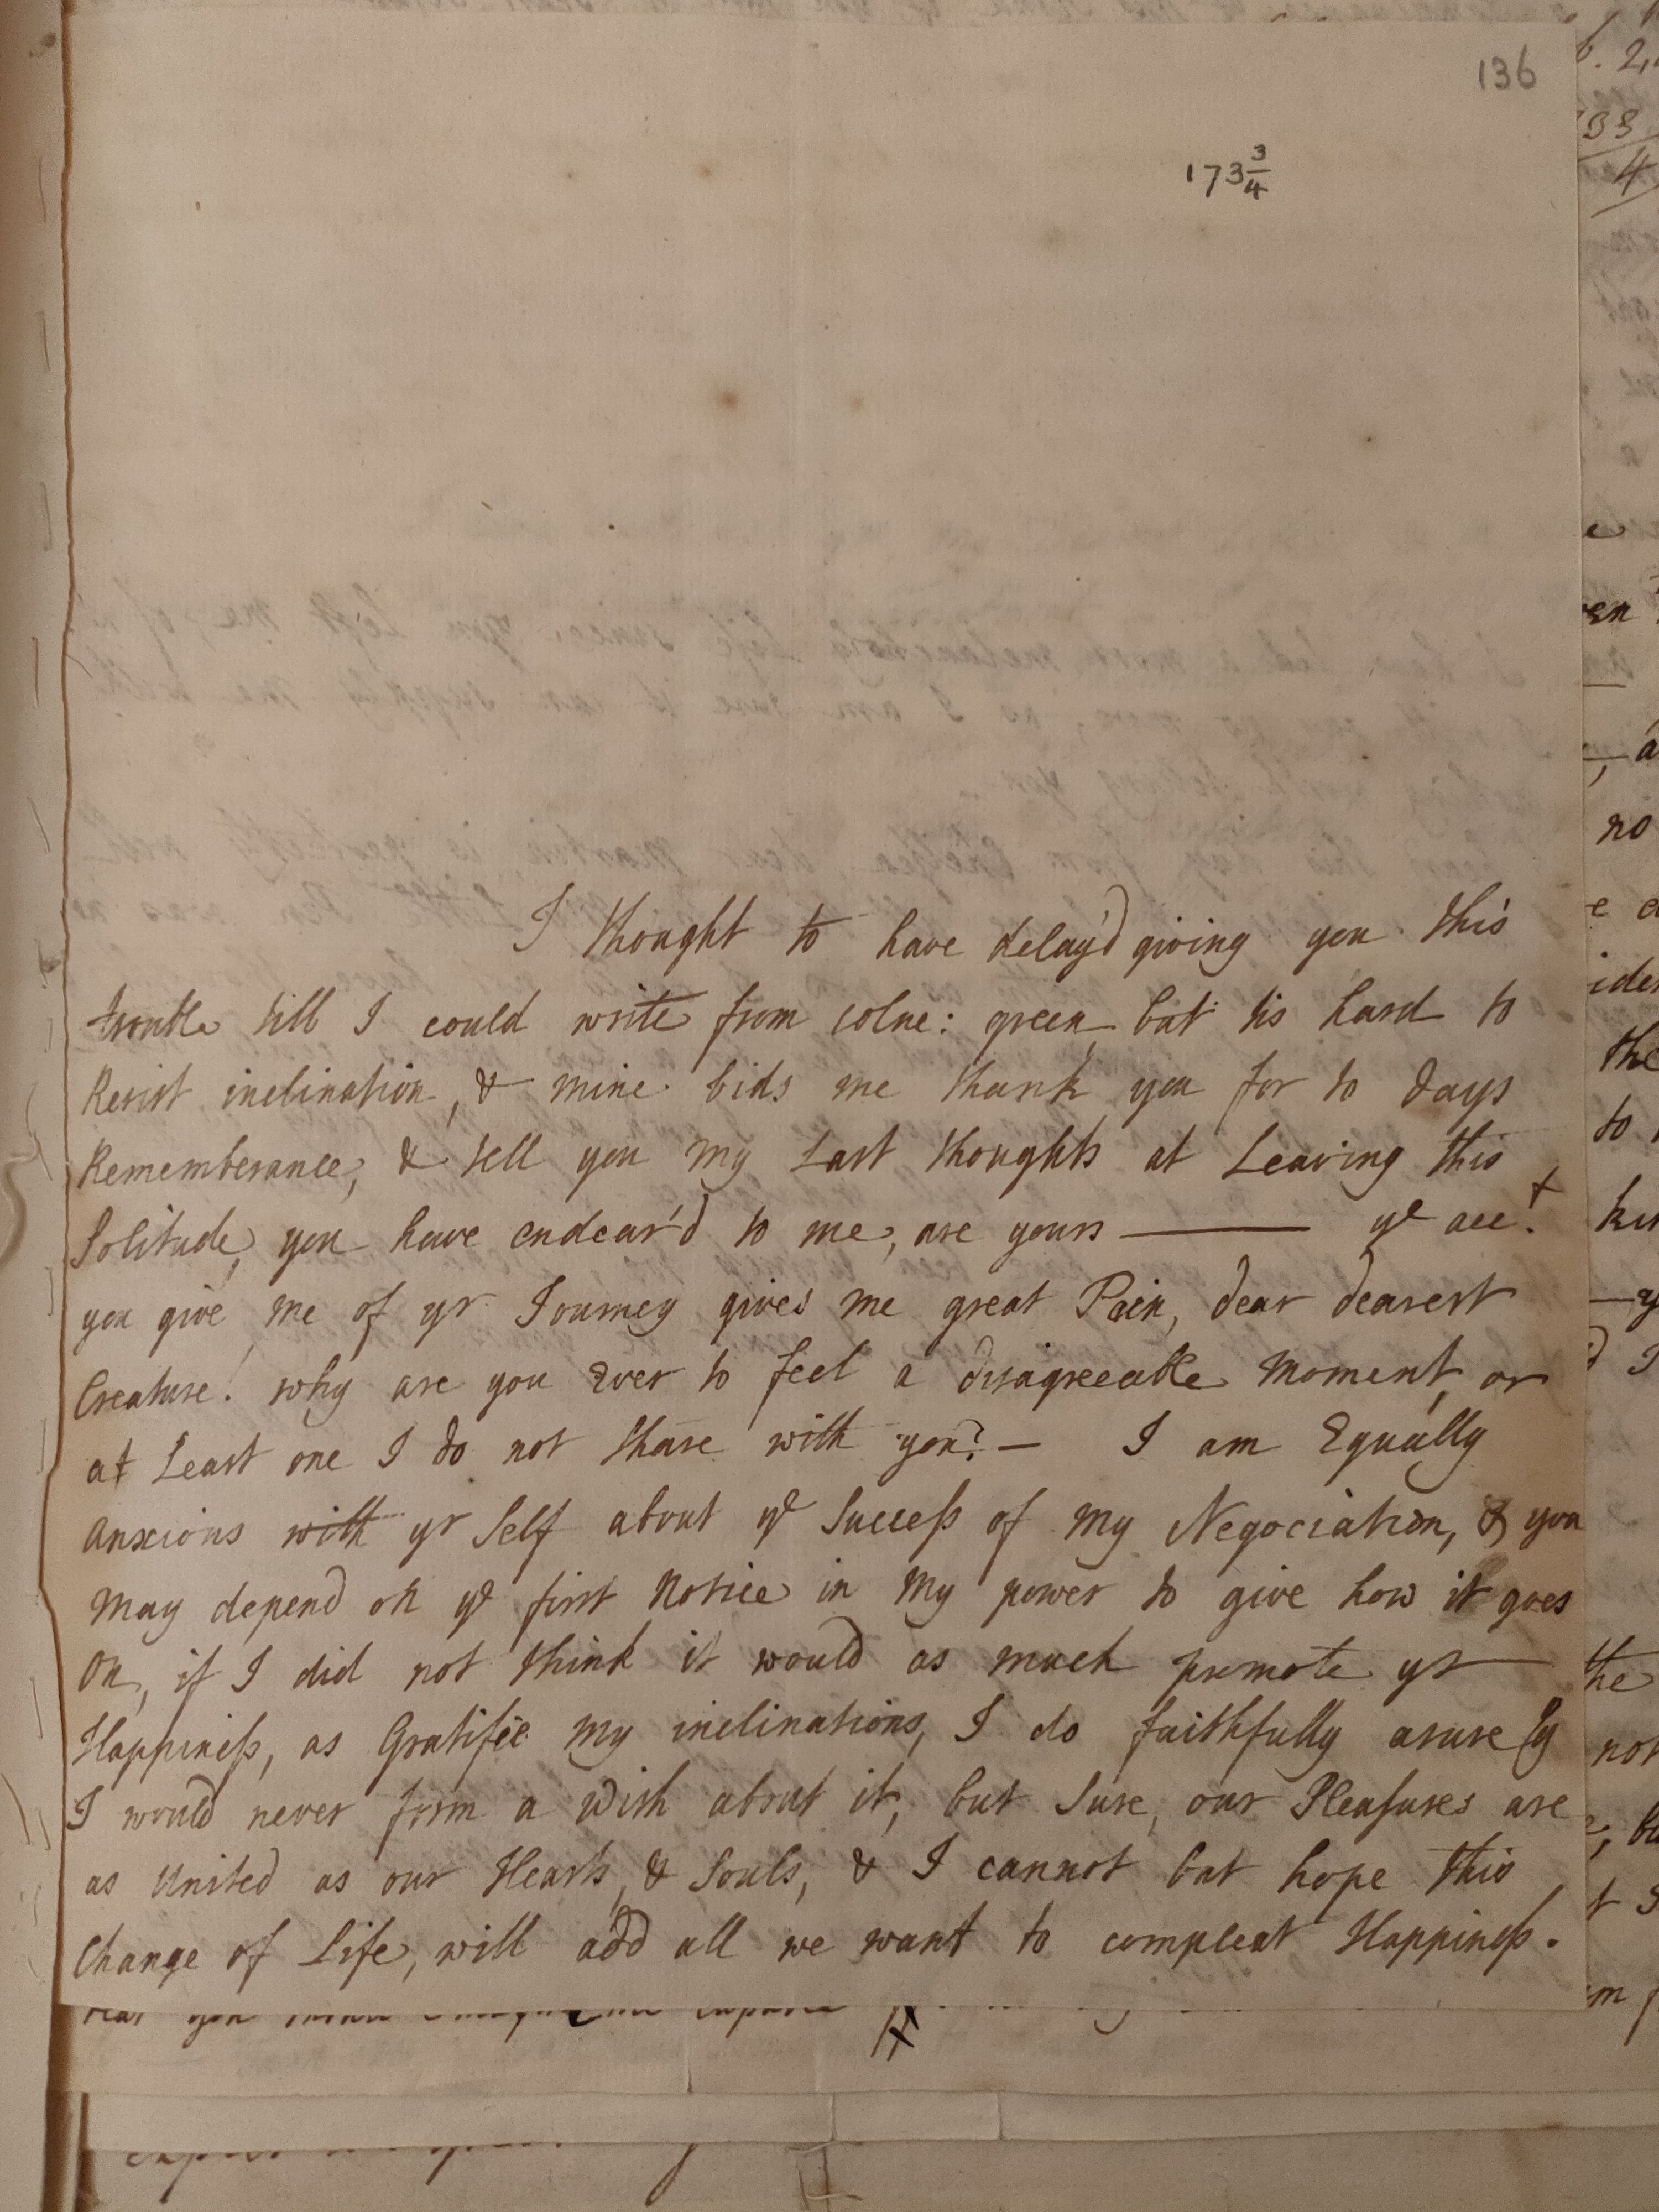 136
173 3/4
I thought to have delay'd giving you this
trouble till I could write from colne: green but tis hard to
Resist inclination, & mine bids me thank you for to days
Rememberance, & tell you my Last thoughts at Leaving this
Solitude, you have endear'd to me, are yours —— ye acct
you give me of yr Journey gives me great Pain, dear dearest
Creature! why are you Ever to feel a disagreeable Moment, or
at Least one I do not share with you? — I am Equally
Anxious with yr Self about ye Success of my Negociation, & you
may depend on ye first Notice in my power to give how it goes
On, if I did not think it would as much promote yr
Happiness, as Gratifie my inclinations, I do faithfully asure
I would never form a Wish about it, but Sure, our Pleasures are
as United as our Hearts, & Souls, & I cannot but hope this
Change of Life, will add all we want to compleat Happiness.